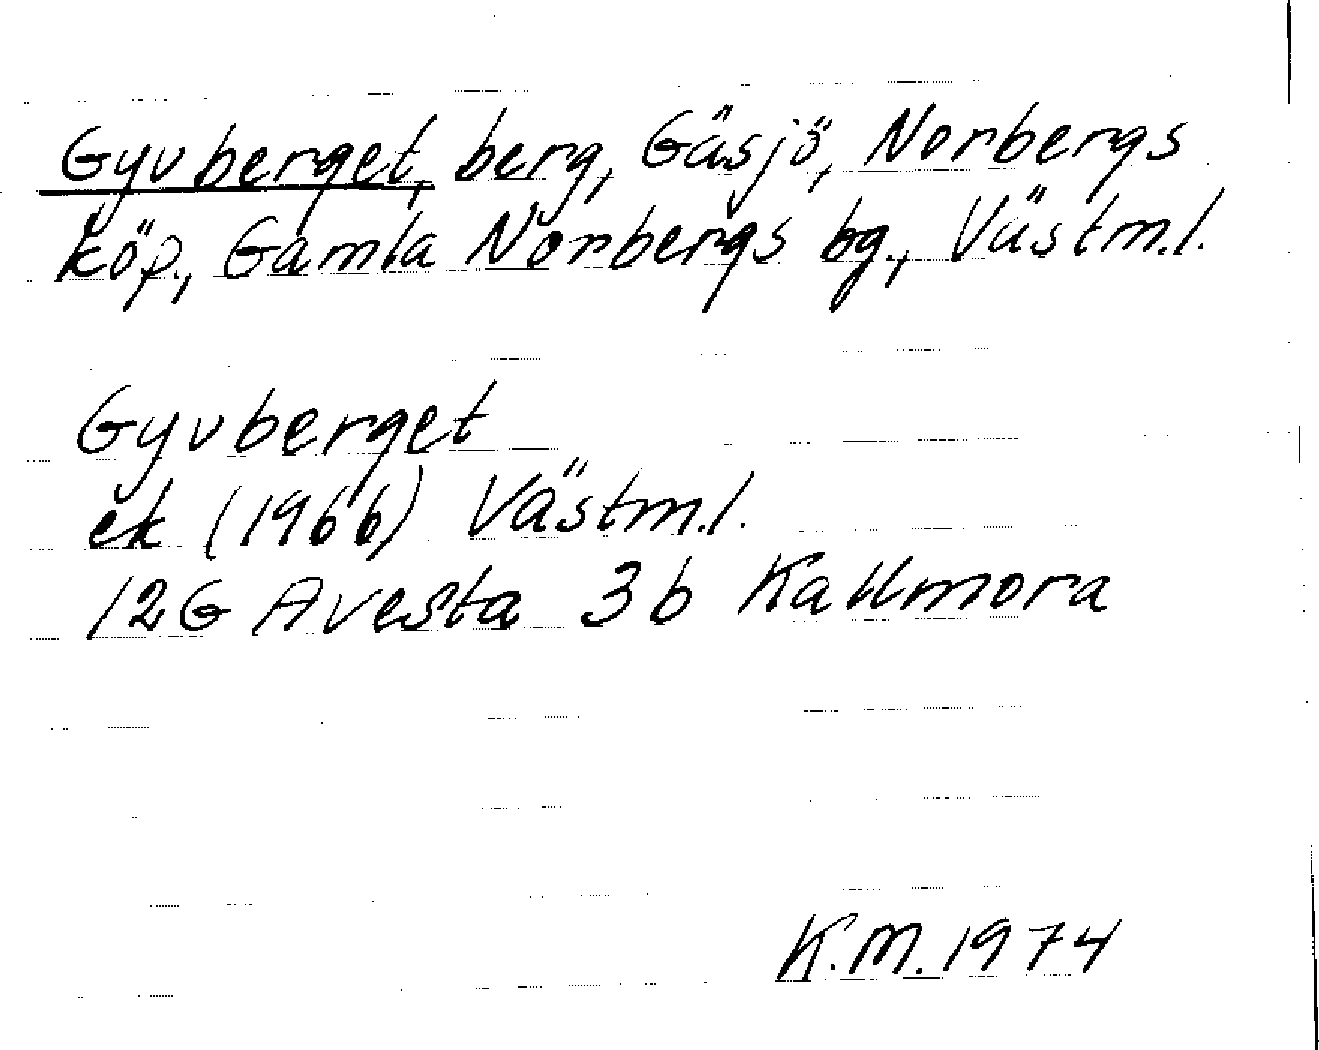 Gyvberget, berg, Gäsjö, Norbergs
köp., Gamla Norbergs bg., Västm.l.
Gyvberget
ek (1966) Västm.l.
12G Avesta 3b Kallmora
K.M. 1974